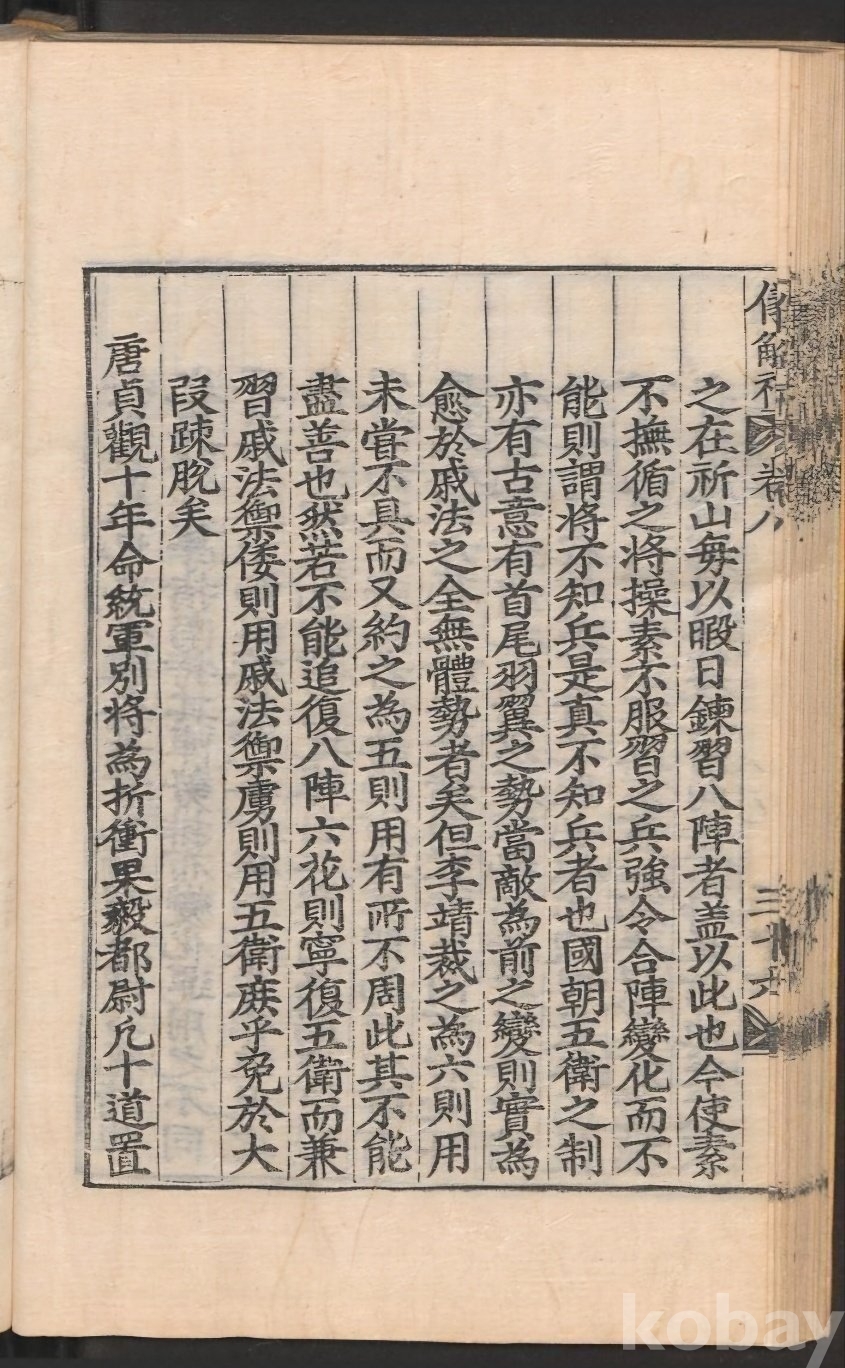 卷八
三十六
之在祈山每以暇日鍊習八陣者盖以此也今使素
不撫循之將操素不服習之兵強令合陣變化而不
能則謂將不知兵是真不知兵者也國朝五衛之制
亦有古意有首尾羽翼之勢當敵為前之變則實為
愈於戚法之全無體勢者矣但李靖裁之為六則用
未嘗不具而又約之為五則用有所不周此其不能
盡善也然若不能追復八陣六花則寧復五衛而兼
習戚法禦倭則用戚法禦虜則用五衛庶乎免於大
段踈脫矣
唐貞觀十年命統軍別將為折衝果毅都尉凡十道置
kobay